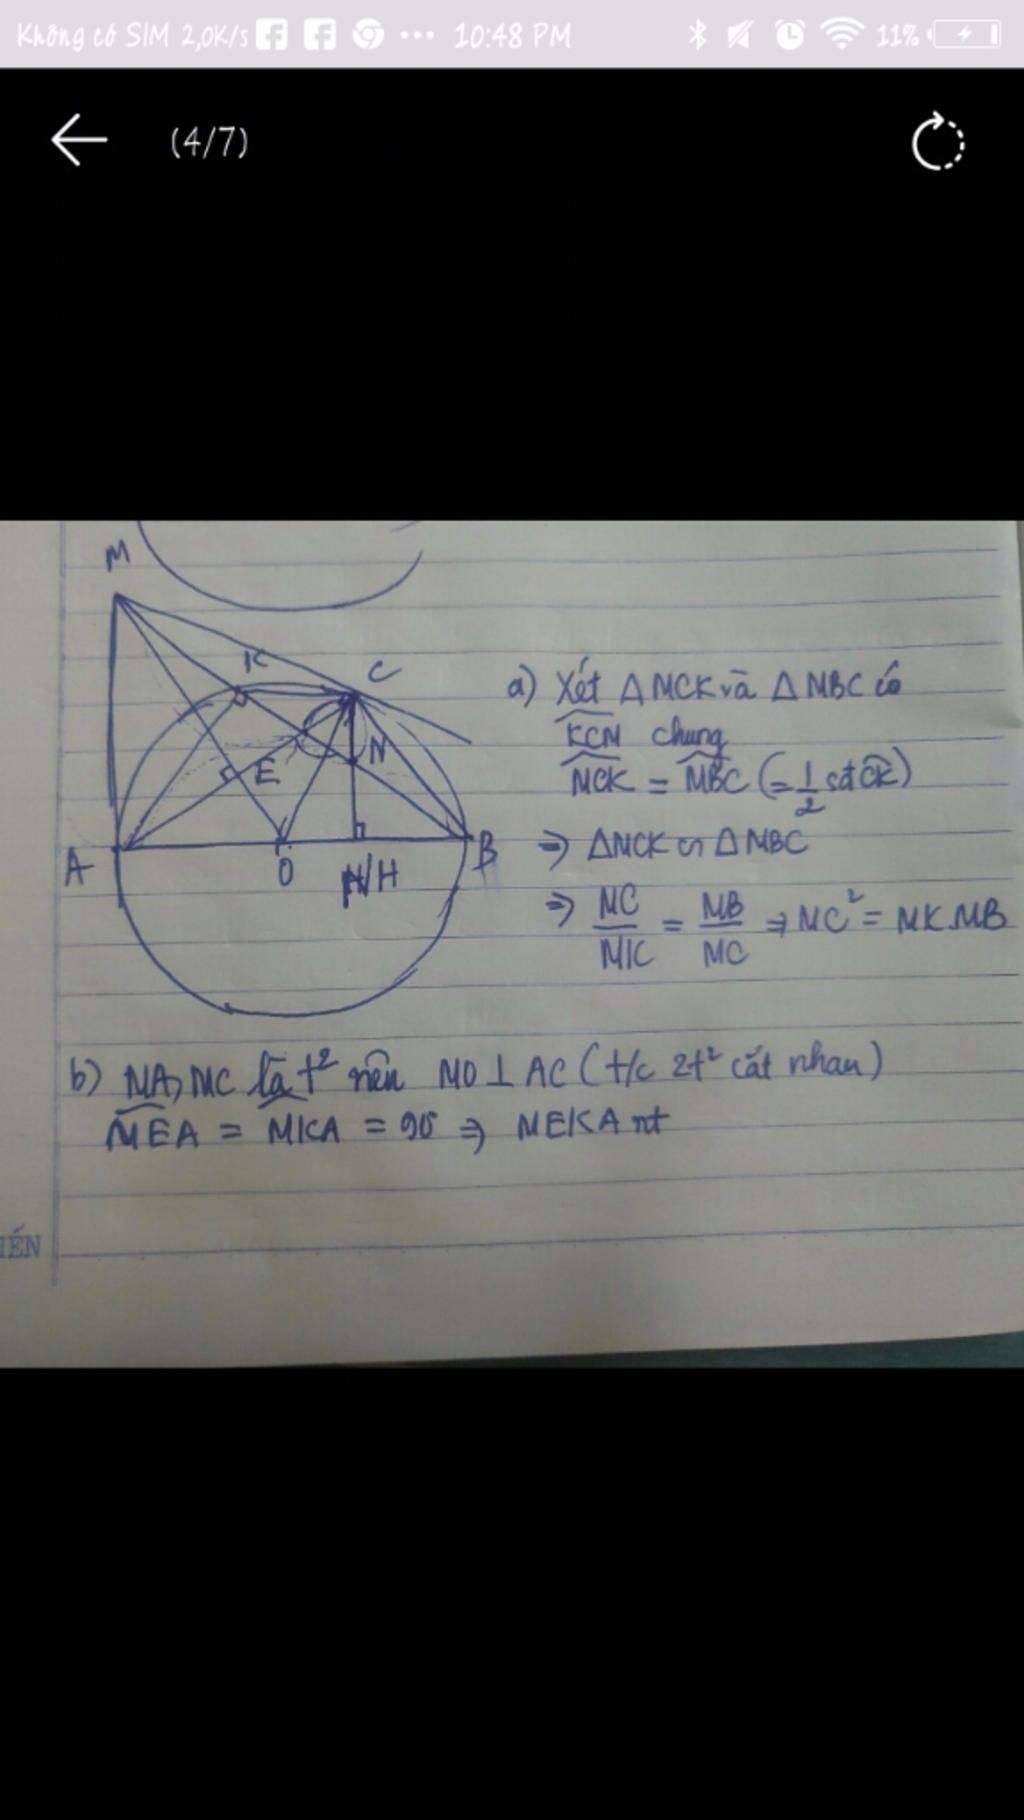 Không có SIM 2,0K/s ... 10:48 PM 11%
(4/7)
M
K
C
E
N
A
O
H
B
a) Xét Δ MCK và Δ MBC có
KCM chung
MCK = MBC (= 1/2 sđ CK)
⇒ ΔMCK ∽ ΔMBC
⇒ MC/MK = MB/MC ⇒ MC² = MK.MB
b) MA, MC là t² nên MO ⊥ AC (t/c 2t² cắt nhau)
MEA = MKA = 90 ⇒ MEKA nt
IẾN